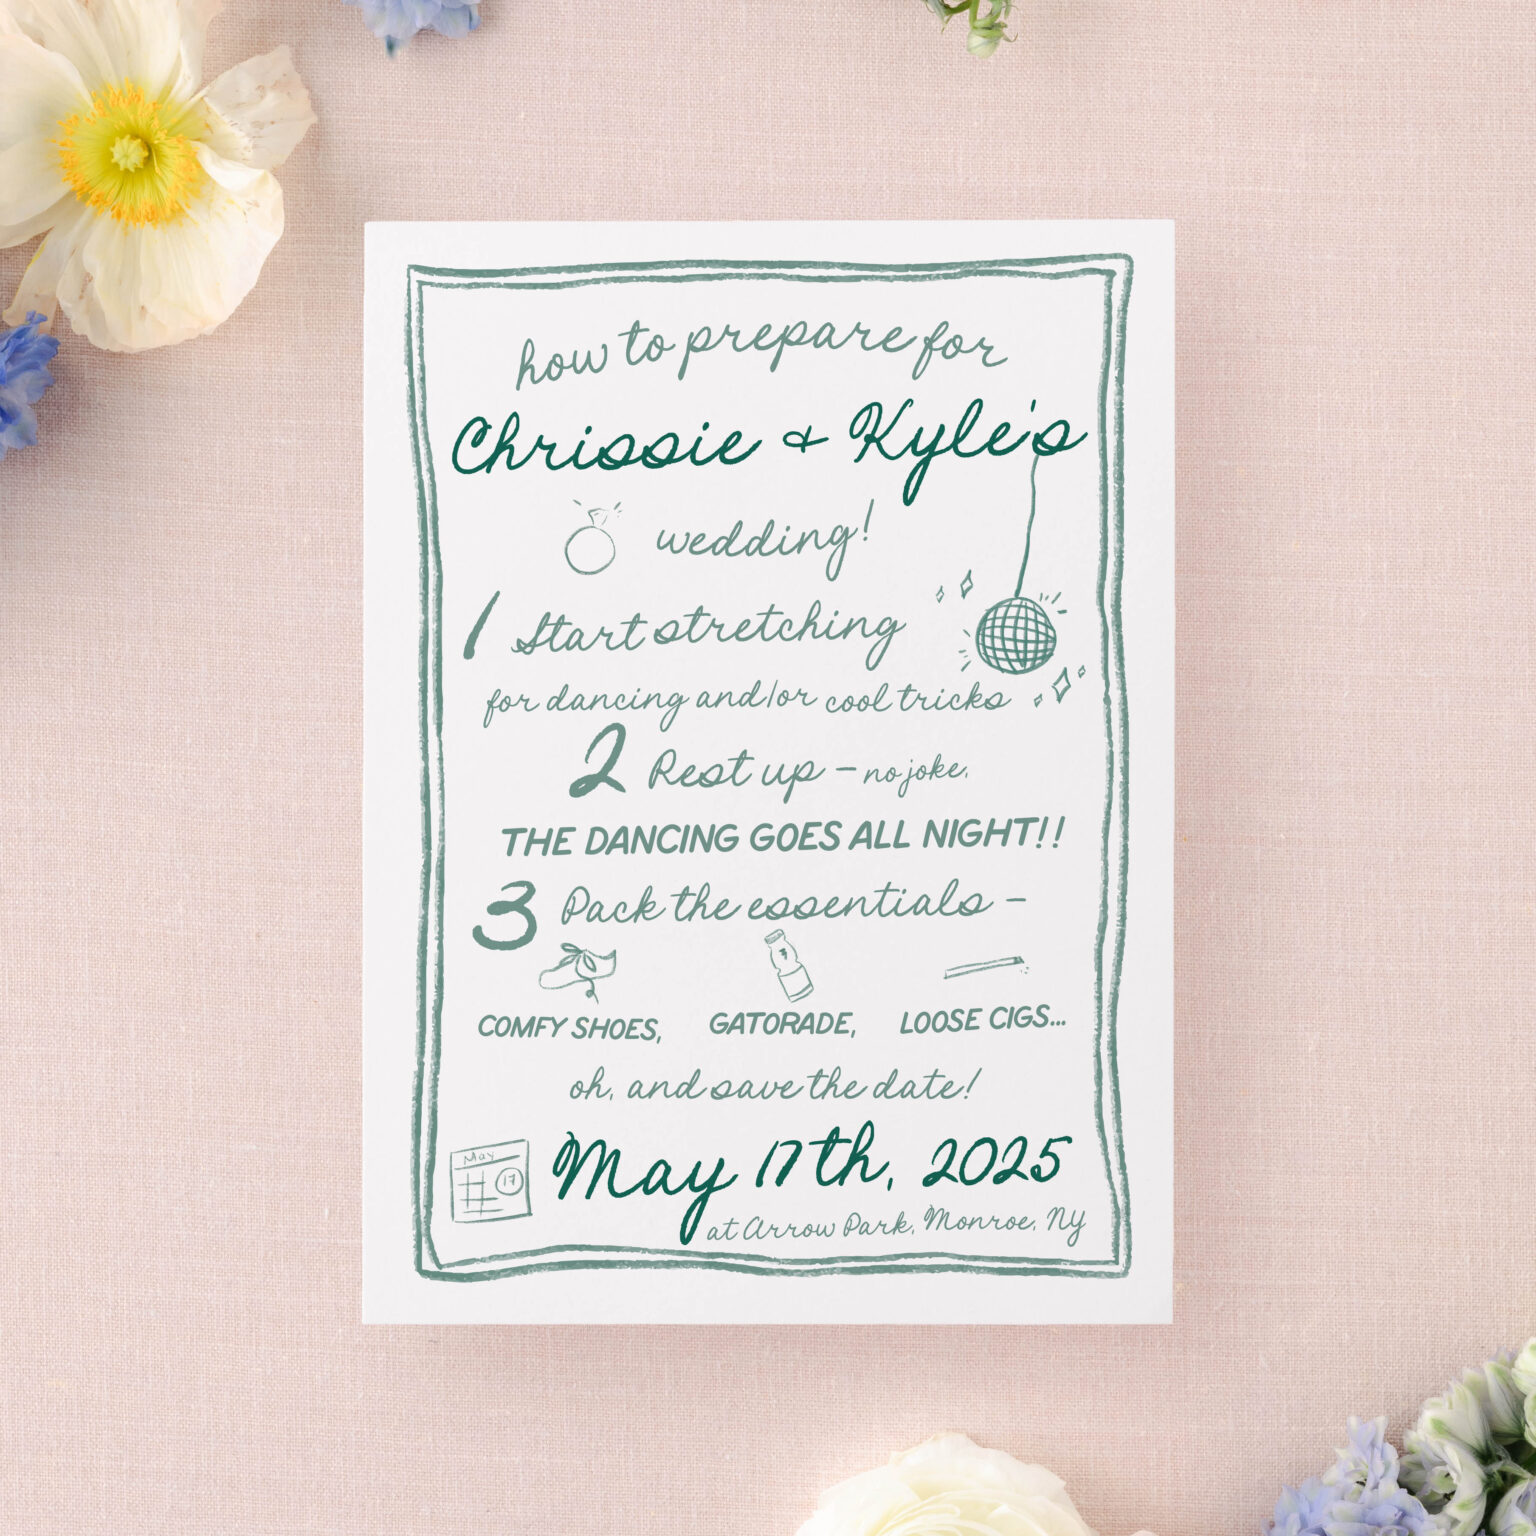 how to prepare for
Chrissie & Kyle's
wedding!
1 Start stretching
for dancing and/or cool tricks
2 Rest up – no joke,
THE DANCING GOES ALL NIGHT!!
3 Pack the essentials –
COMFY SHOES, GATORADE, LOOSE CIGS...
oh, and save the date!
May
17
May 17th, 2025
at Arrow Park, Monroe, NY